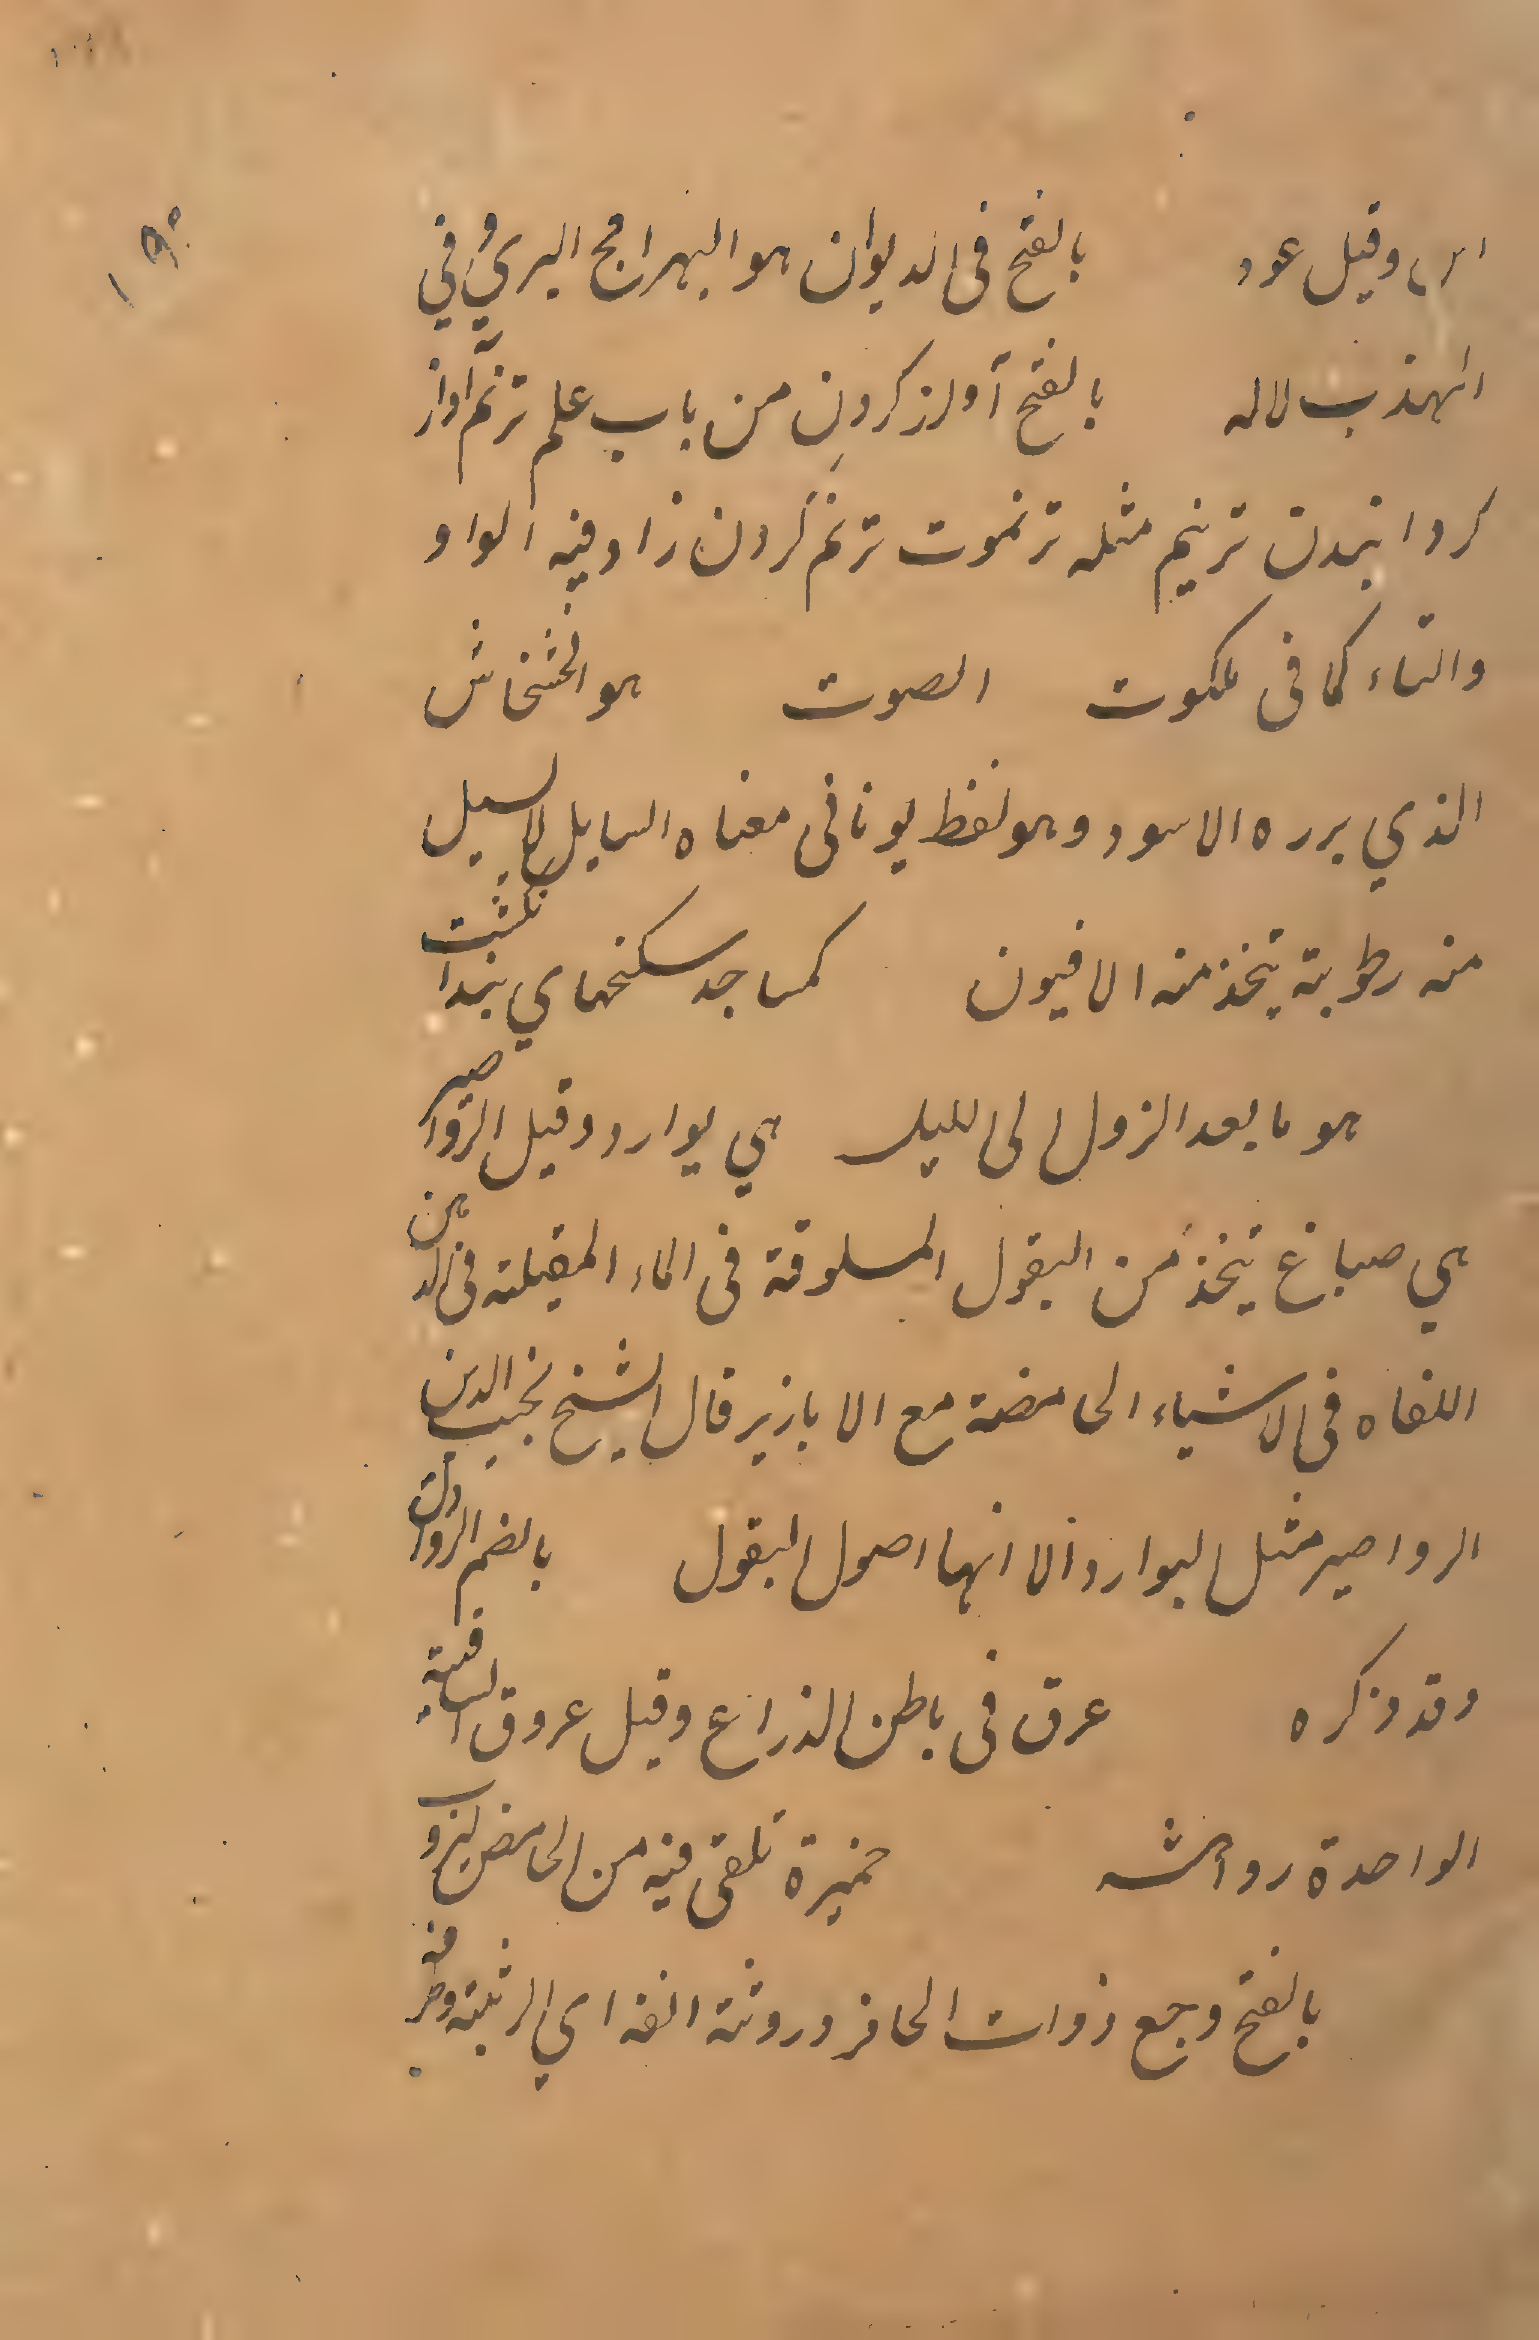 ۱۹۰
الاس وقيل عود بالفتح فى الديوان هو البهرامج البري وفي
المهذب لاله بالفتح آواز كردن من باب علم ترنّم آواز
كردانيدن ترنيم مثله ترنموت ترنم كردن زاد فيه الواو
والتاء كما فى ملكوت الصوت هو الخشخاش
الذي برزه الاسود وهو لفظ يونانى معناه السايل لا يسيل
منه رطوبة يتخذ منه الافيون كمساجد سكنحهاي بندانكشت
هو ما بعد الزول الى لليل هي يوارد وقيل الرواصير
هي صباغ يتخذ من البقول المسلوقة فى الماء المقيلته فى الدهن
اللفاه فى الاشياء الحامضة مع الابازير قال الشيخ نجيب الدين
الرواصير مثل البوارد الا انها اصول البقول بالضم الروادن
وقد ذكره عرق فى باطن الذراع وقيل عروق
الواحدة رواهشه خميرة تلقى فيه من الحامض ليروب
بالفتح وجع ذوات الحافر وروثة انفه اي ارنبته وطرفه